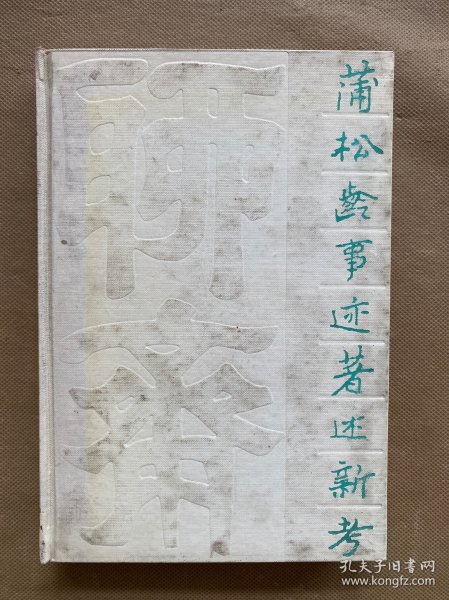 蒲松齡事迹著述新考
聊齋
孔夫子旧书网
www.kongfz.com